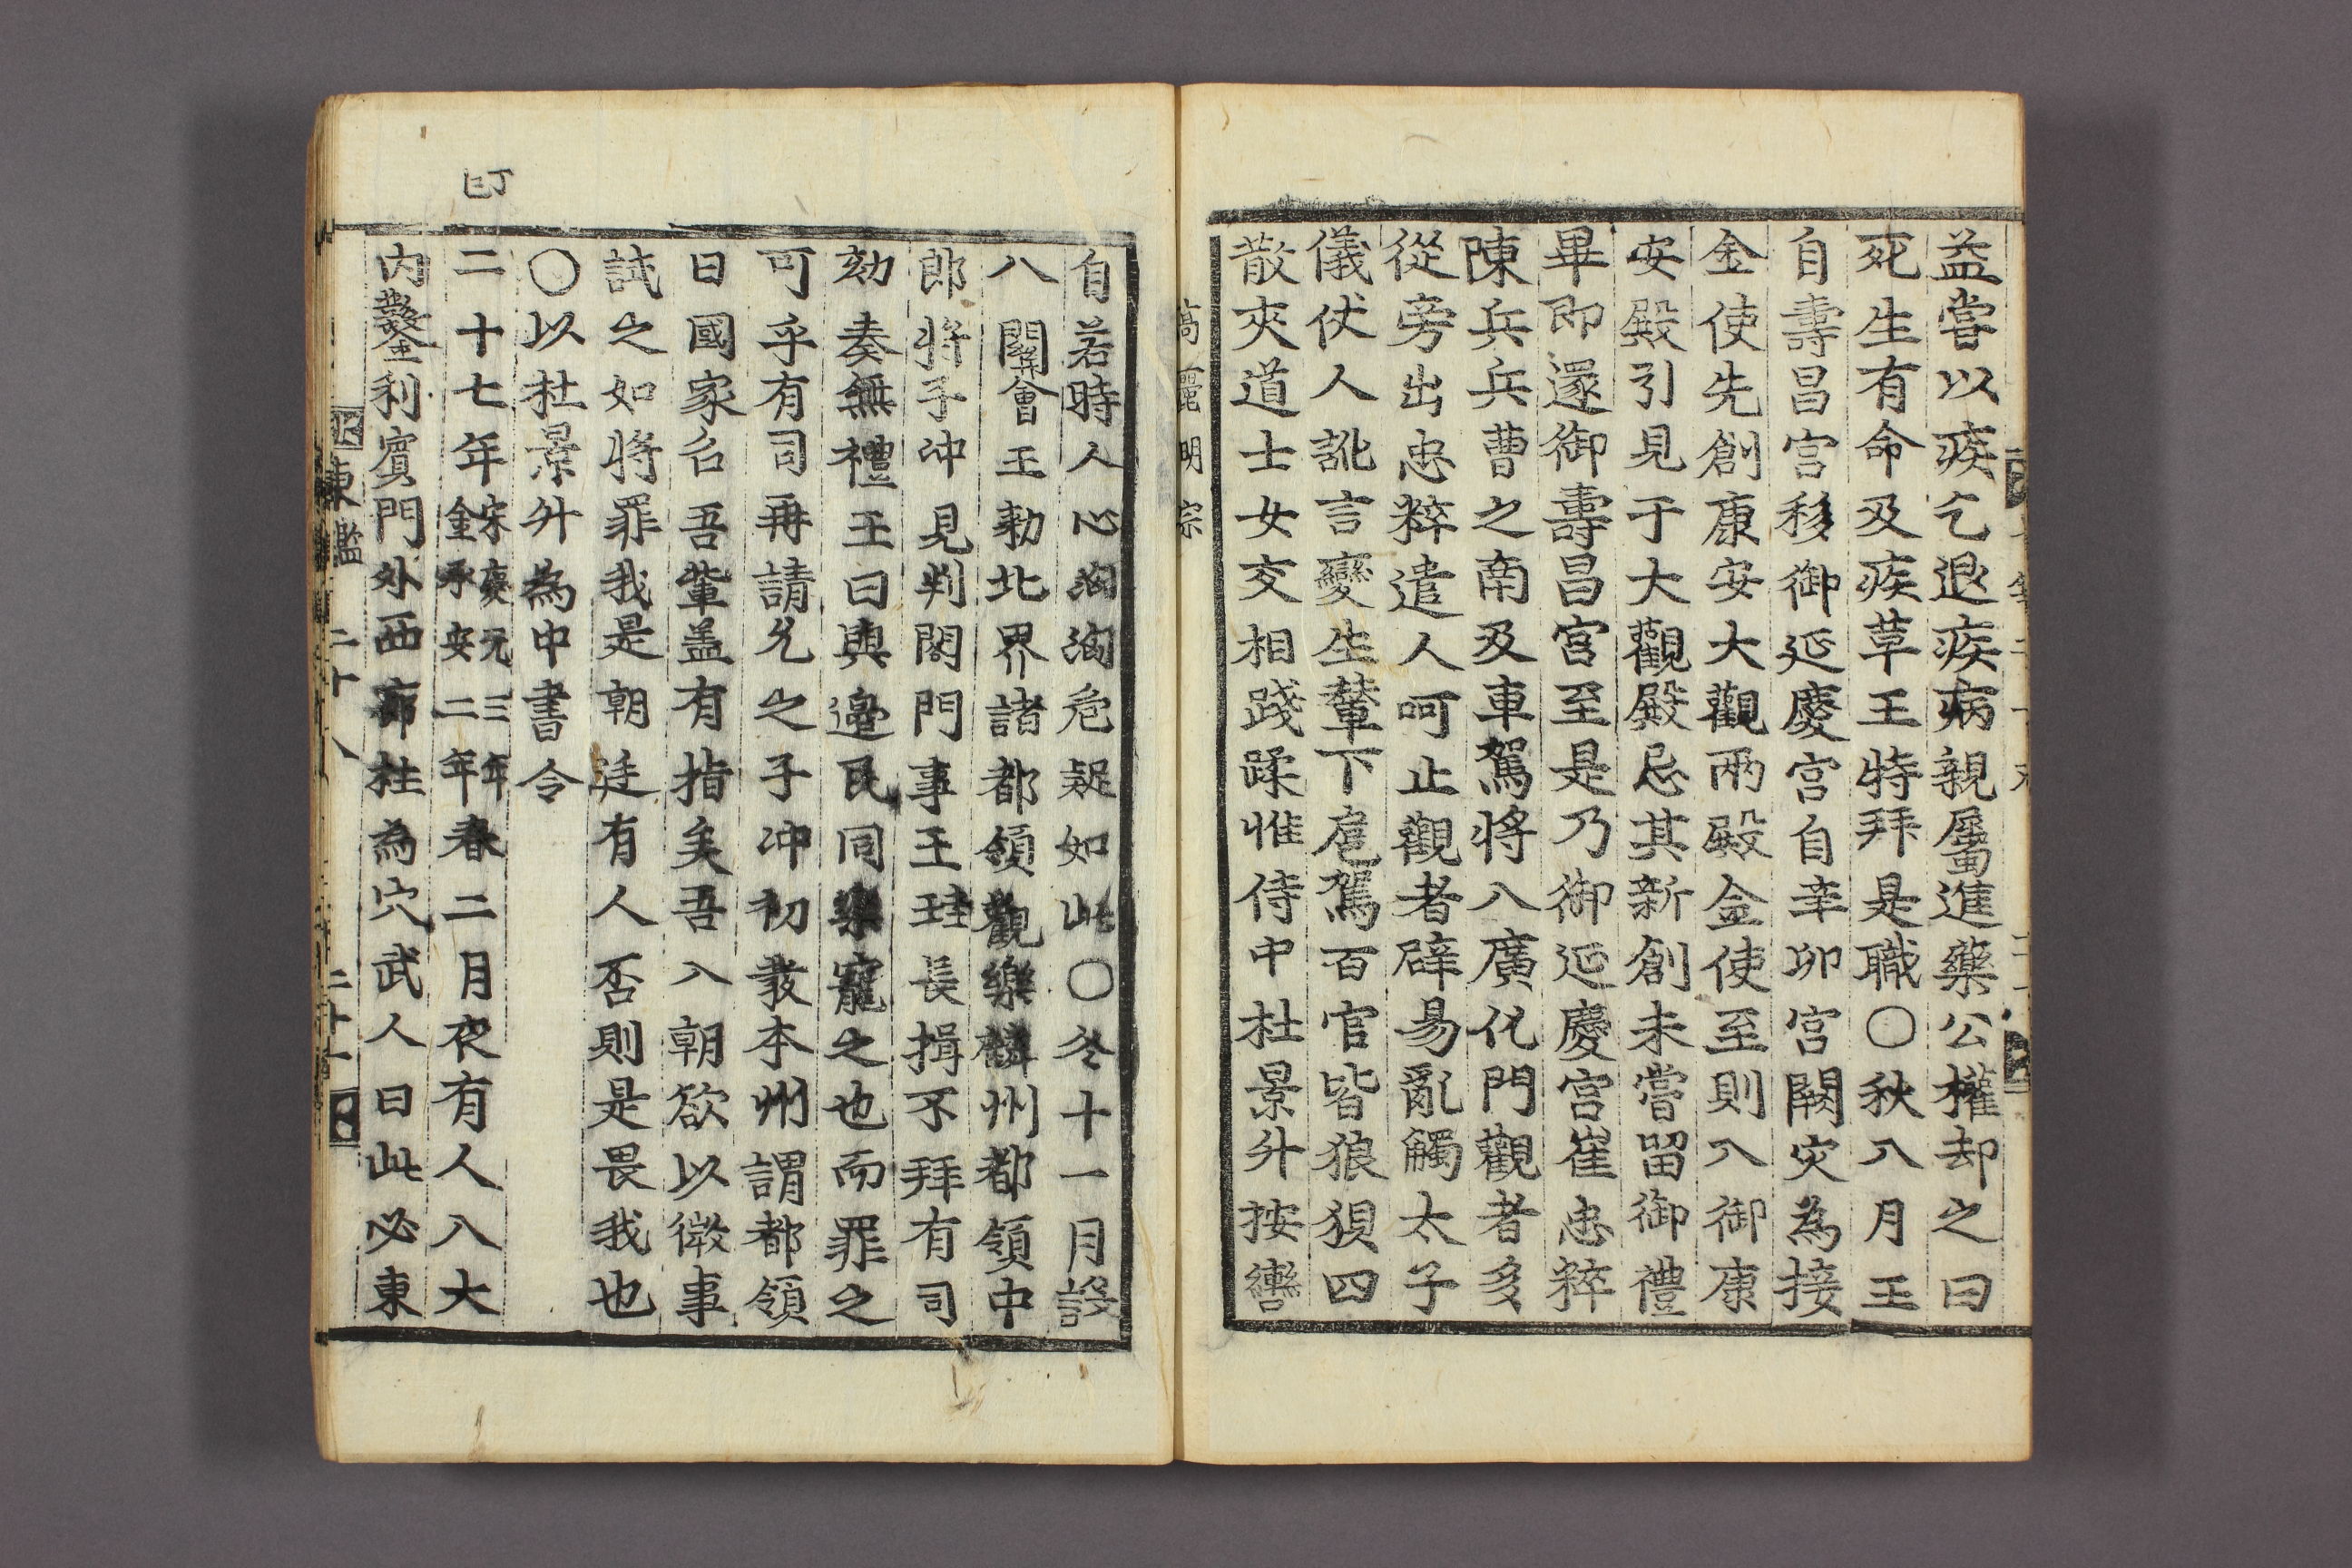 益嘗以疾乞退疾病親屬進藥公權却之曰
死生有命及疾草王特拜是職〇秋八月王
自壽昌宮移御延慶宮自辛卯宮闕灾為接
金使先創康安大觀兩殿金使至則入御康
安殿引見于大觀殿忌其新創未嘗留御禮
畢即還御壽昌宮至是乃御延慶宮崔忠粹
陳兵兵曹之南及車駕將入廣化門觀者多
從旁出忠粹遣人呵止觀者辟易亂觸太子
儀仗人訛言變生輦下扈駕百官皆狼狽四
散夾道士女交相踐蹂惟侍中杜景升按轡
高麗明宗
自若時人心洶洶危疑如此〇冬十一月設
八關會王勑北界諸都領觀樂麟州都領中
郎將子冲見判閤門事王珪長揖不拜有司
劾奏無禮王曰與邊民同樂寵之也而罪之
可乎有司再請允之子冲初發本州謂都領
曰國家召吾輩盖有指矣吾入朝欲以微事
試之如將罪我是朝廷有人否則是畏我也
〇以杜景升為中書令
丁巳
二十七年宋慶元三年金承安二年春二月夜有人入大
內鑿利賓門外西廊柱為穴武人曰此必東
東鑑 二十八 二十一